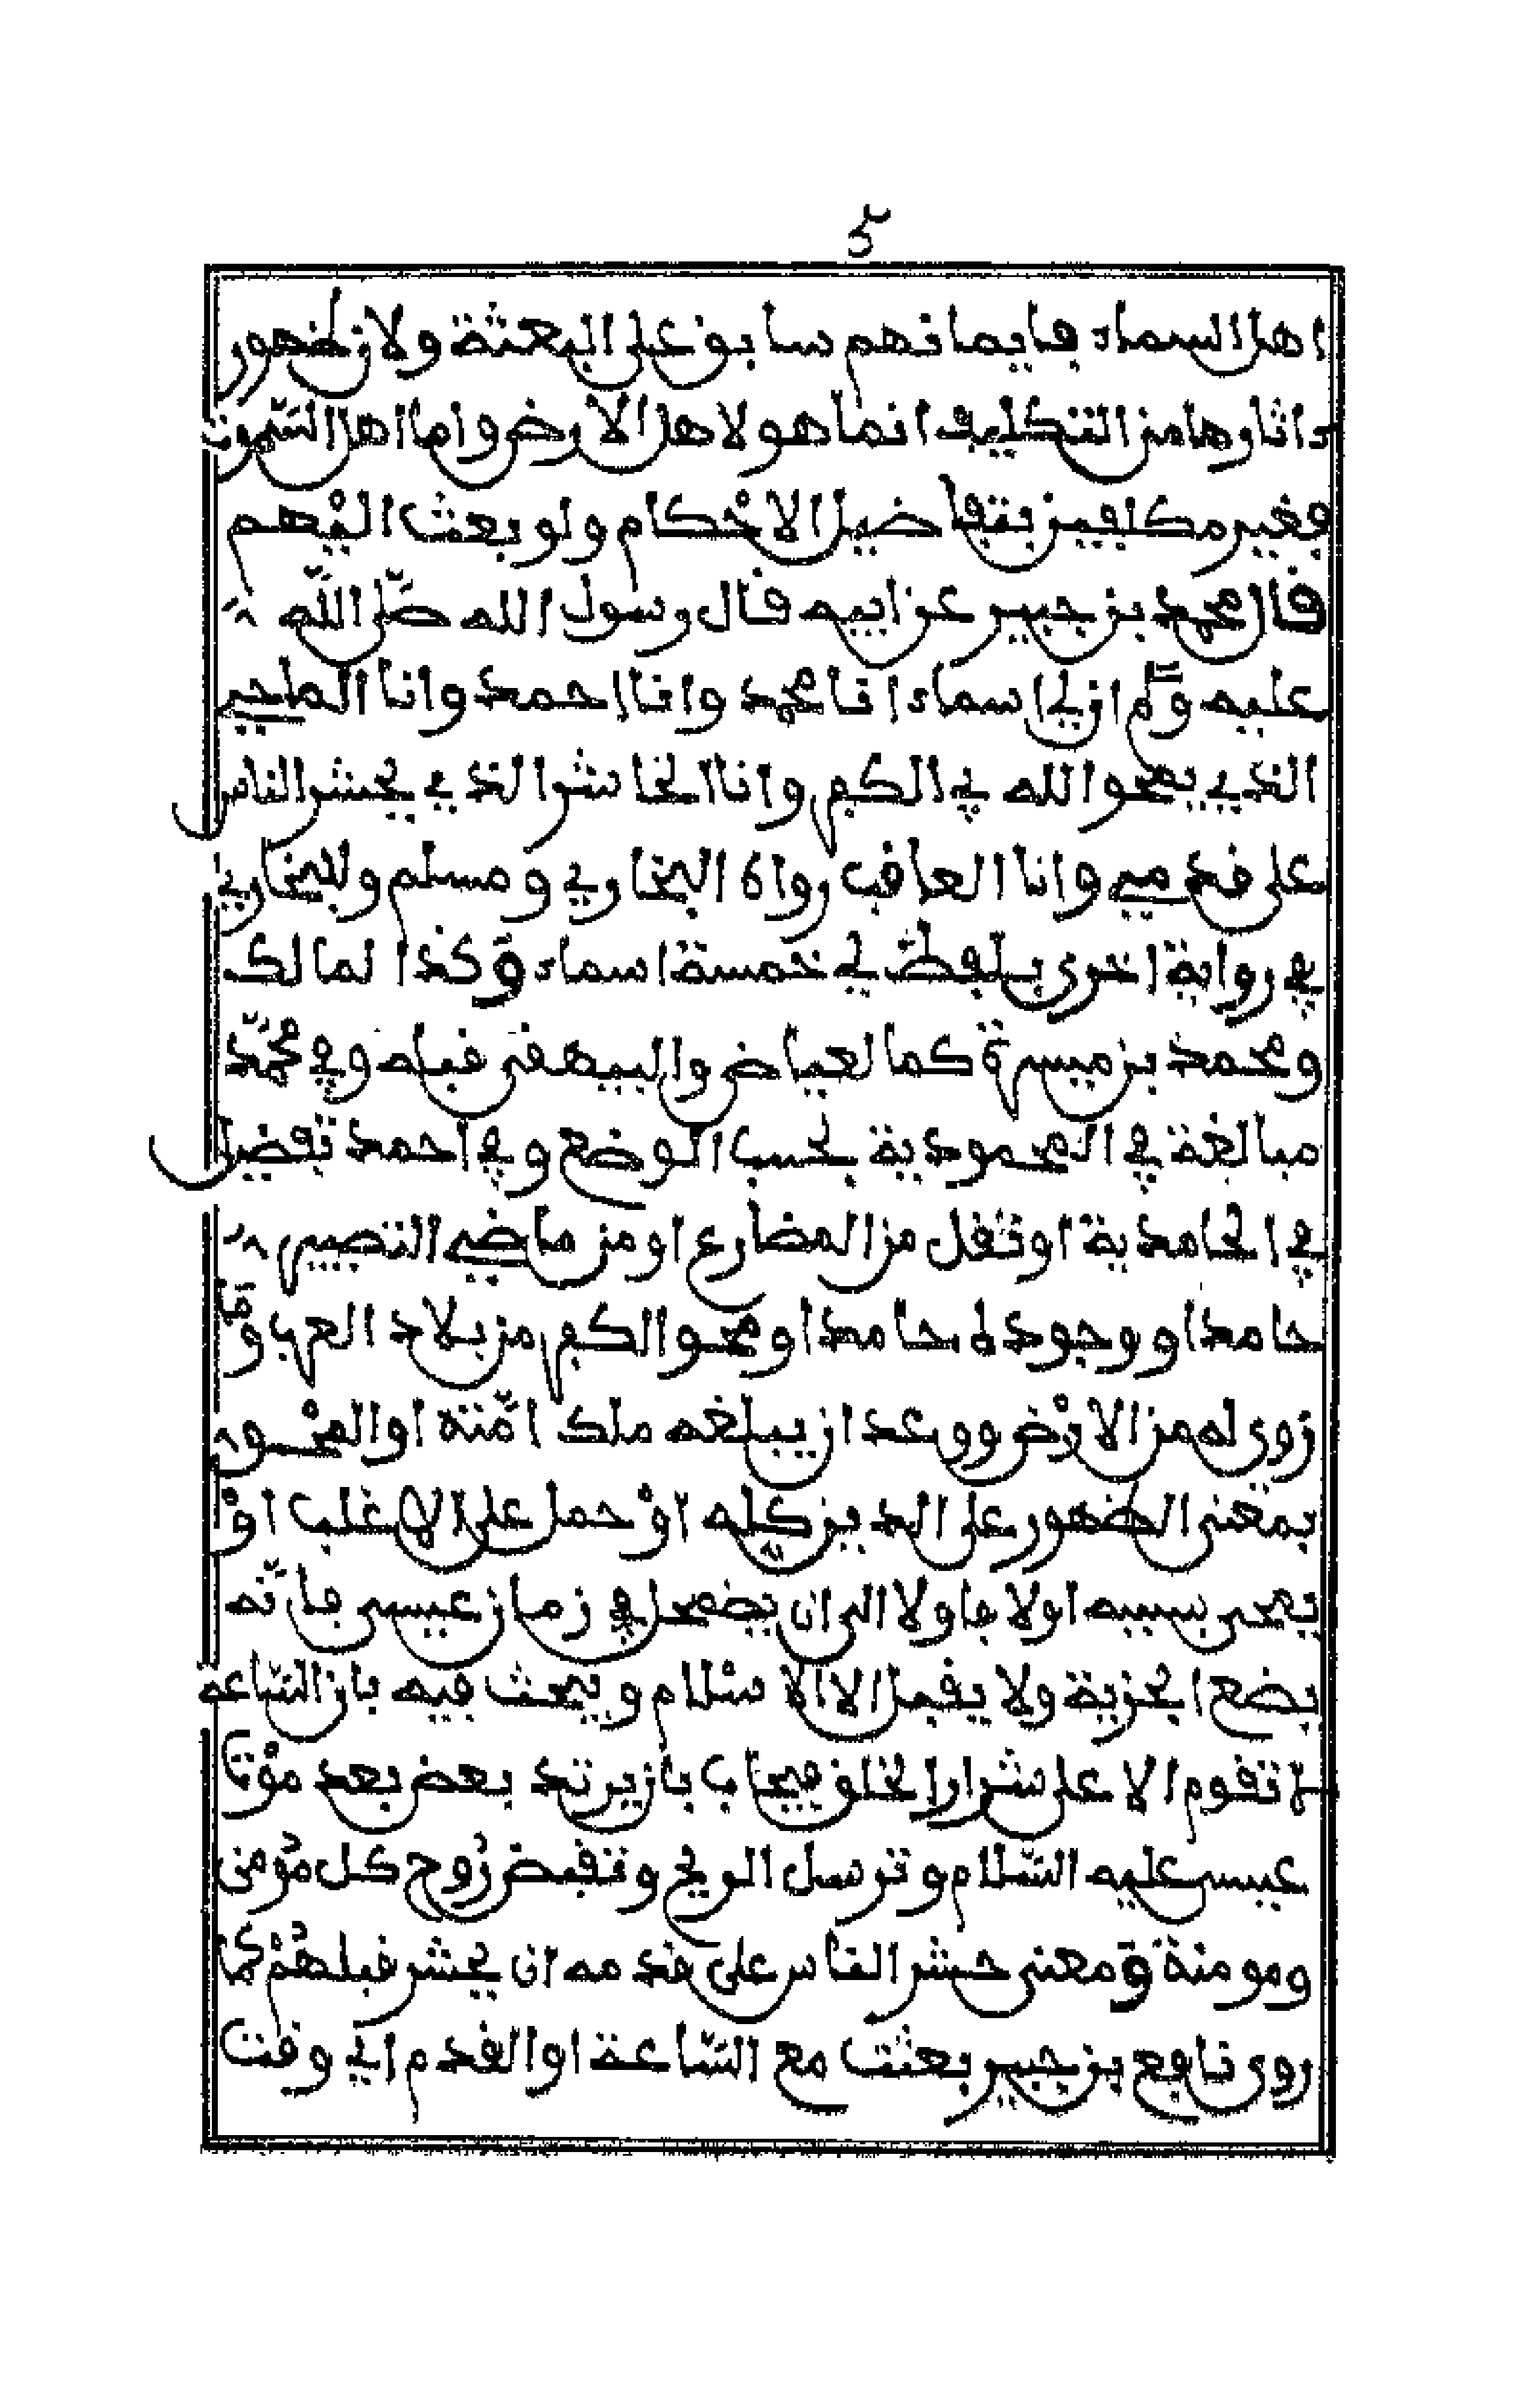 5
اهل السماء فايمانهم سابق على البعثة ولان ظهور
ءاثارها من التكليف انما هو لاهل الارض واما اهل السّموت
فغير مكلفين بتفاضيل الاحْكام ولو بعث اليْهم
قال محمد بن جبير عن ابيه قال رسول الله صلّى اللّه
عليه وسلم ان لي اسماء انا محمد وانا احمد وانا الماحي
الذي يمحو الله بي الكفر وانا الحاشر الذي يحشر الناس
على قدمي وانا العاقب رواه البخاري ومسلم وللبخاري
في رواية اخرى بلفظ لي خمسة اسماء وكذا لمالك
ومحمد بن ميسرة كما لعياض والبيهقي قبله وفي محمّد
مبالغة في المحمودية بحسب الوضع وفي احمد تفضيل
في الحامدية او نقل من المضارع او من ماضي التصيير
حامدا ووجوده حامدا ومحو الكفر من بلاد العرب و
زوي له من الارْض ووعد ان يبلغه ملك امّته او المحْو
بمعنى الظهور على الدين كله اوْ حمل على الاغلب اوْ
يمحى بسببه اولا فاولا الى ان يضمحل في زمان عيسى فانّه
يضع الجزية ولا يقبل الا الاسْلام ويبحث فيه بان السّاعة
لا تقوم الا على شرار الخلق فيجاب بان يرتد بعض بعد موْت
عيسى عليه السّلام وترسل الريح وتقبض رُوح كل مُومن
ومومنة ومعنى حشر الناس على قدمه ان يحشر قبلهُمْ كما
روى نافع بن جبير بعثت مع السّاعة او القدم اي وقت